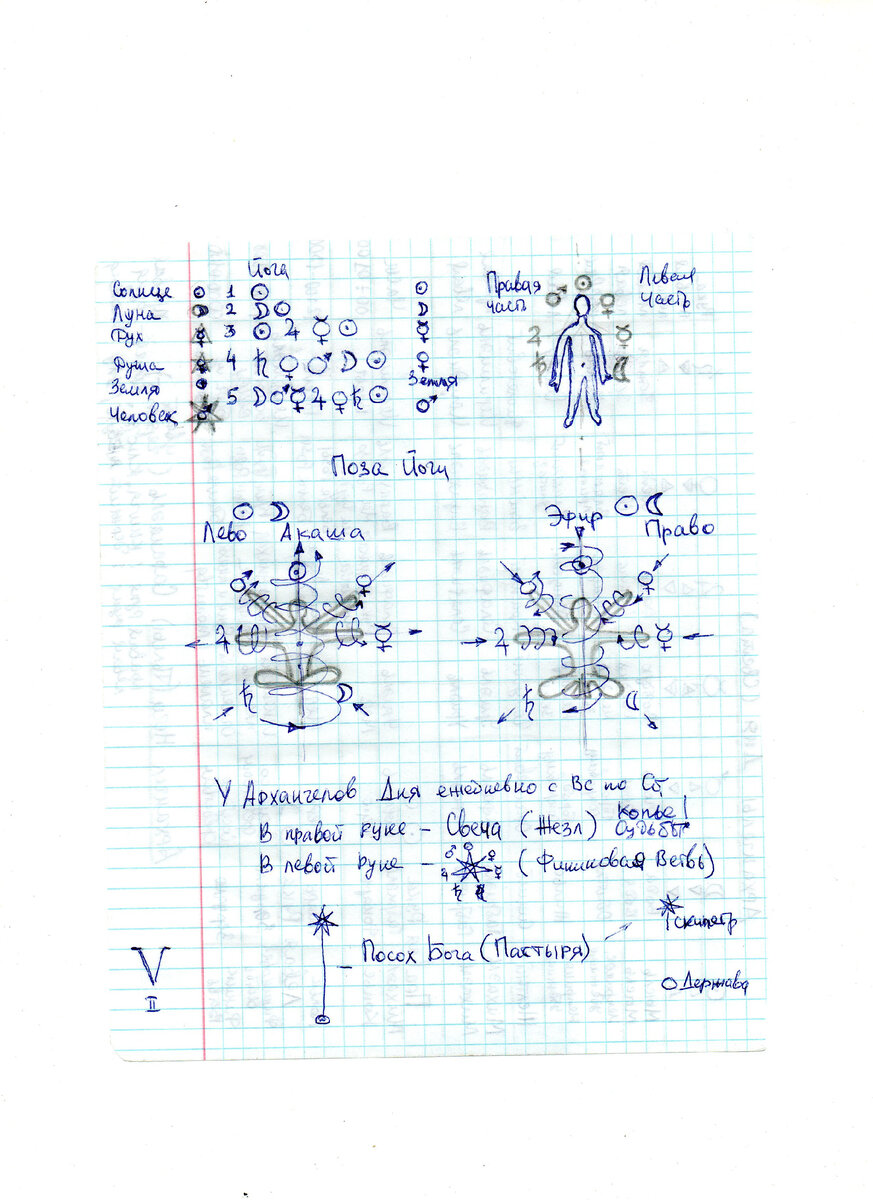 Йога
Солнце ☉ 1 ☉ ☉
Луна ☽ 2 ☽ ☉ ☽
Дух ☿ 3 ☉ ♃ ☿ ☉ ☿
Душа ♀ 4 ♄ ♀ ♂ ☽ ☉ ♀
Земля Земля
Человек ♂ 5 ☽ ♂ ☿ ♃ ♀ ♄ ☉ ♂
Правая часть
Левая часть
☉
♂ ♀
♃ ☿
♄ ☾
Поза Йоги
☉ ☽
Лево Акаша
☉
♂ ♀
♃ ☿
♄ ☽
Эфир ☉ ☾
Право
☉
♂ ♀
♃ ☿
♄ ☾
У Архангелов Дня ежедневно с Вс по Сб
В правой руке – Свеча (Жезл) Копье Судьбы!
В левой руке – (Финиковая Ветвь)
♂ ☉ ♀
♃ ☿
♄ ☾
Посох Бога (Пастыря)
скипетр
Держава
V
II